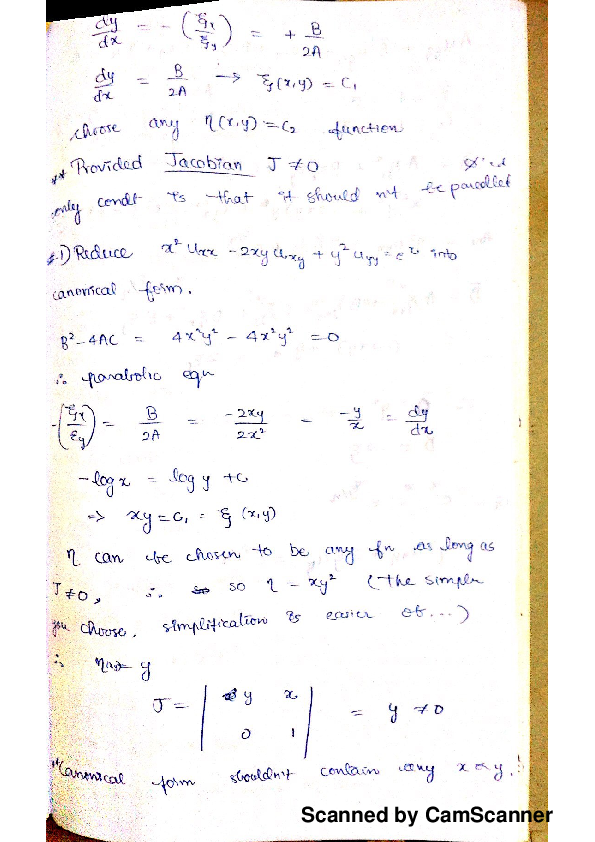 dy/dx = - (ξx/ξy) = + B/2A
dy/dx = B/2A → ξ(x,y) = C₁
choose any η(x,y) = C₂ function
** Provided Jacobian J ≠ 0
only condt is that it should n't be parallel
1) Reduce x² Uxx - 2xy Uxy + y² Uyy = e^x into
canonical form.
B² - 4AC = 4x²y² - 4x²y² = 0
∴ parabolic equ
-(ξx/ξy) = B/2A = -2xy/2x² = -y/x = dy/dx
-log x = log y + c
=> xy = C₁ = ξ(x,y)
η can be chosen to be any fn as long as
J ≠ 0, ∴ so η = xy² (the simpler
you choose, simplification is easier
∴ y
J = | y x |
| 0 1 | = y ≠ 0
Canonical form shouldn't contain any x or y.
Scanned by CamScanner